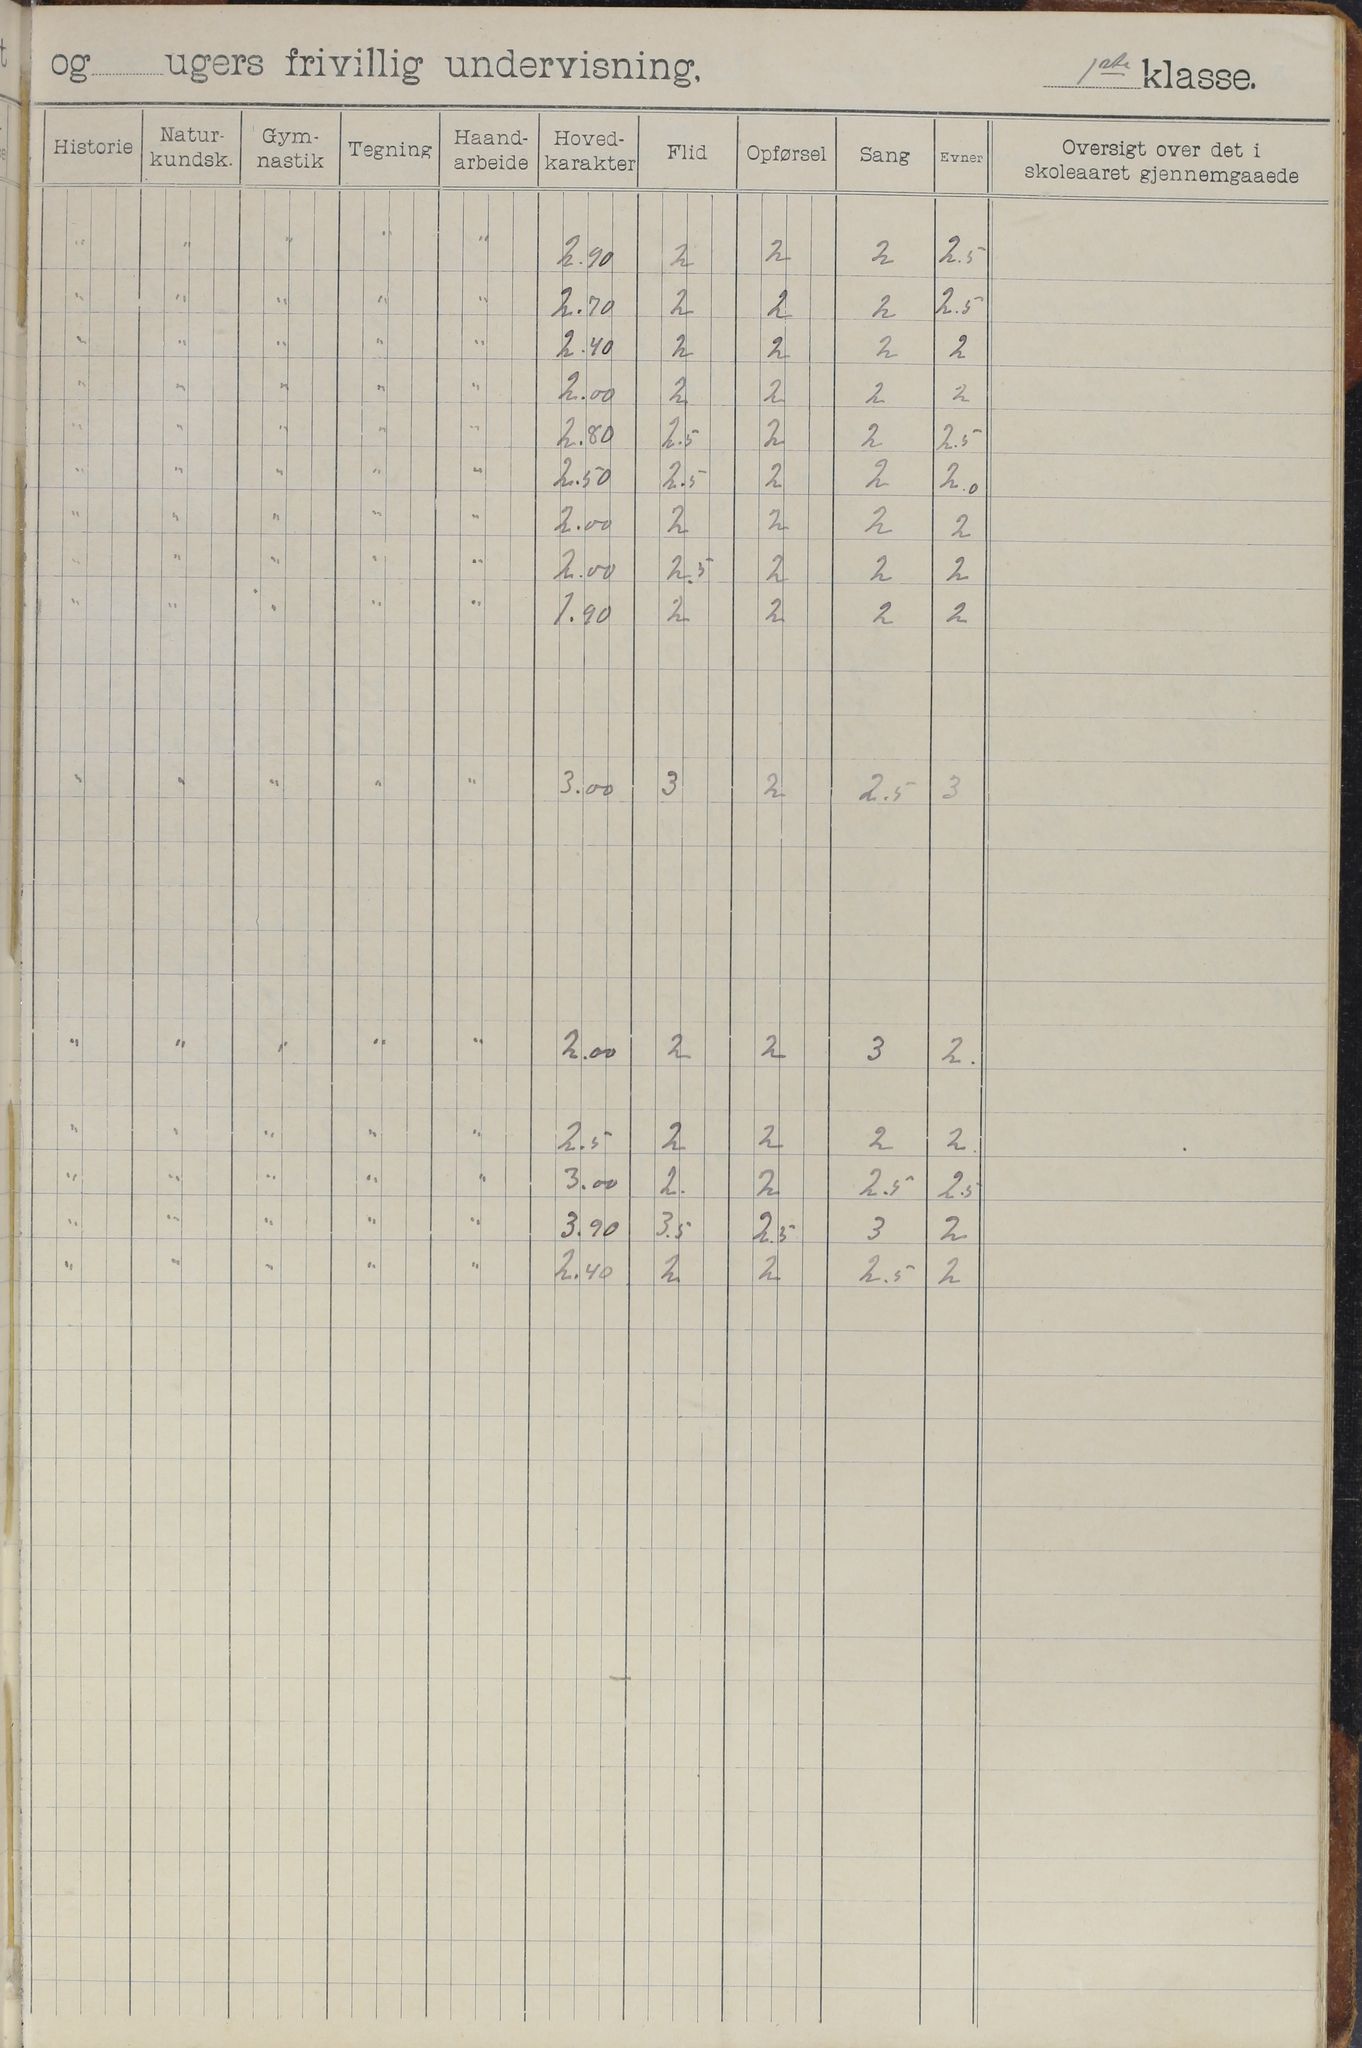 og ugers frivillig undervisning, 1ste klasse.
Historie Natur-kundsk. Gym-nastik Tegning Haand-arbeide Hoved-karakter Flid Opførsel Sang Evner Oversigt over det i skoleaaret gjennemgaaede
" " " " " 2.90 2 2 2 2.5
" " " " " 2.70 2 2 2 2.5
" " " " " 2.40 2 2 2 2
" " " " " 2.00 2 2 2 2
" " " " " 2.80 2.5 2 2 2.5
" " " " " 2.50 2.5 2 2 2.0
" " " " " 2.00 2 2 2 2
" " " " " 2.00 2.5 2 2 2
" " " " " 1.90 2 2 2 2
" " " " " 3.00 3 2 2.5 3
" " " " " 2.00 2 2 3 2.
" " " " " 2.5 2 2 2 2.
" " " " " 3.00 2. 2 2.5 2.5
" " " " " 3.90 3.5 2.5 3 2
" " " " " 2.40 2 2 2.5 2